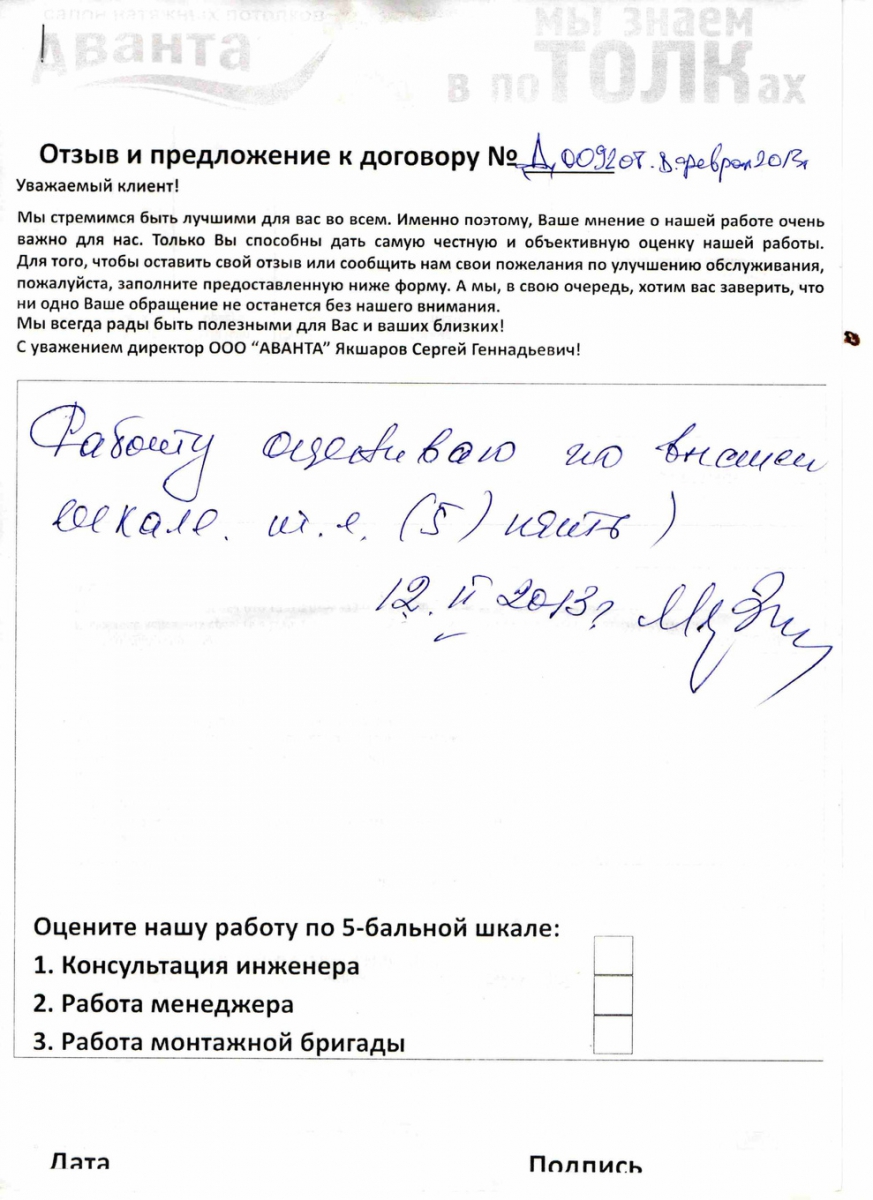 салон натяжных потолков
Аванта
мы знаем
в поТОЛКах
Отзыв и предложение к договору № Д 0092 от 8 феврал 2013г
Уважаемый клиент!
Мы стремимся быть лучшими для вас во всем. Именно поэтому, Ваше мнение о нашей работе очень
важно для нас. Только Вы способны дать самую честную и объективную оценку нашей работы.
Для того, чтобы оставить свой отзыв или сообщить нам свои пожелания по улучшению обслуживания,
пожалуйста, заполните предоставленную ниже форму. А мы, в свою очередь, хотим вас заверить, что
ни одно Ваше обращение не останется без нашего внимания.
Мы всегда рады быть полезными для Вас и ваших близких!
С уважением директор ООО “АВАНТА” Якшаров Сергей Геннадьевич!
Работу оцениваю по высшей
шкале. т.е. (5) пять)
12. II 2013г
Оцените нашу работу по 5-бальной шкале:
1. Консультация инженера
2. Работа менеджера
3. Работа монтажной бригады
Дата Подпись